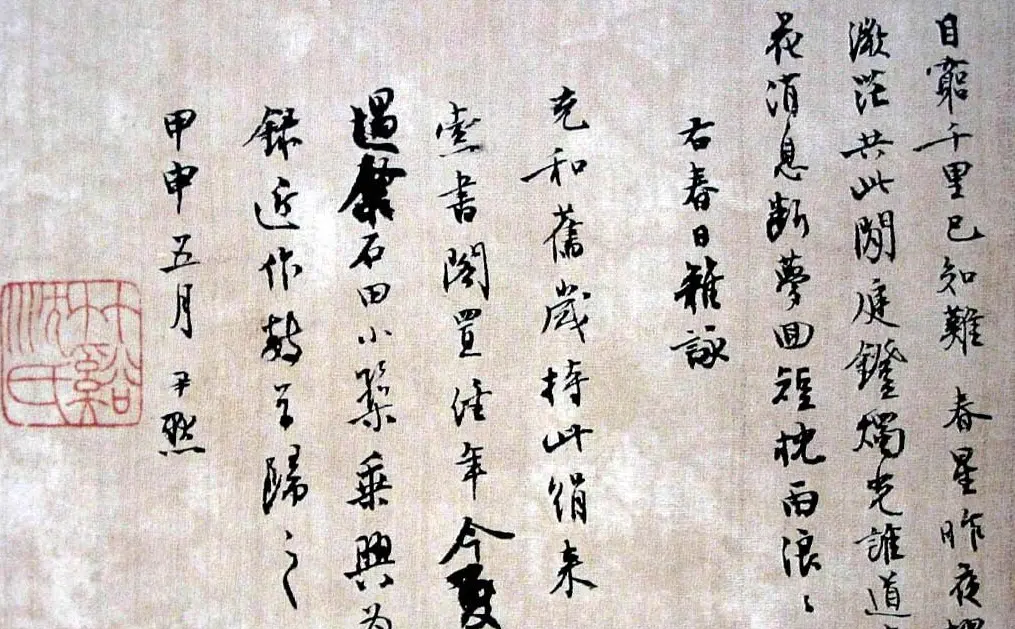 目窮千里已知難 春星昨夜
茫共此閒庭鐙燭光誰道
花消息斷夢回短枕雨浪〻
右春日雜詠
充和舊歲持此絹来
索書閣置經年今夏
過石田小築乘興為
錄近作數首歸之
甲申五月 尹默
竹谿沈氏